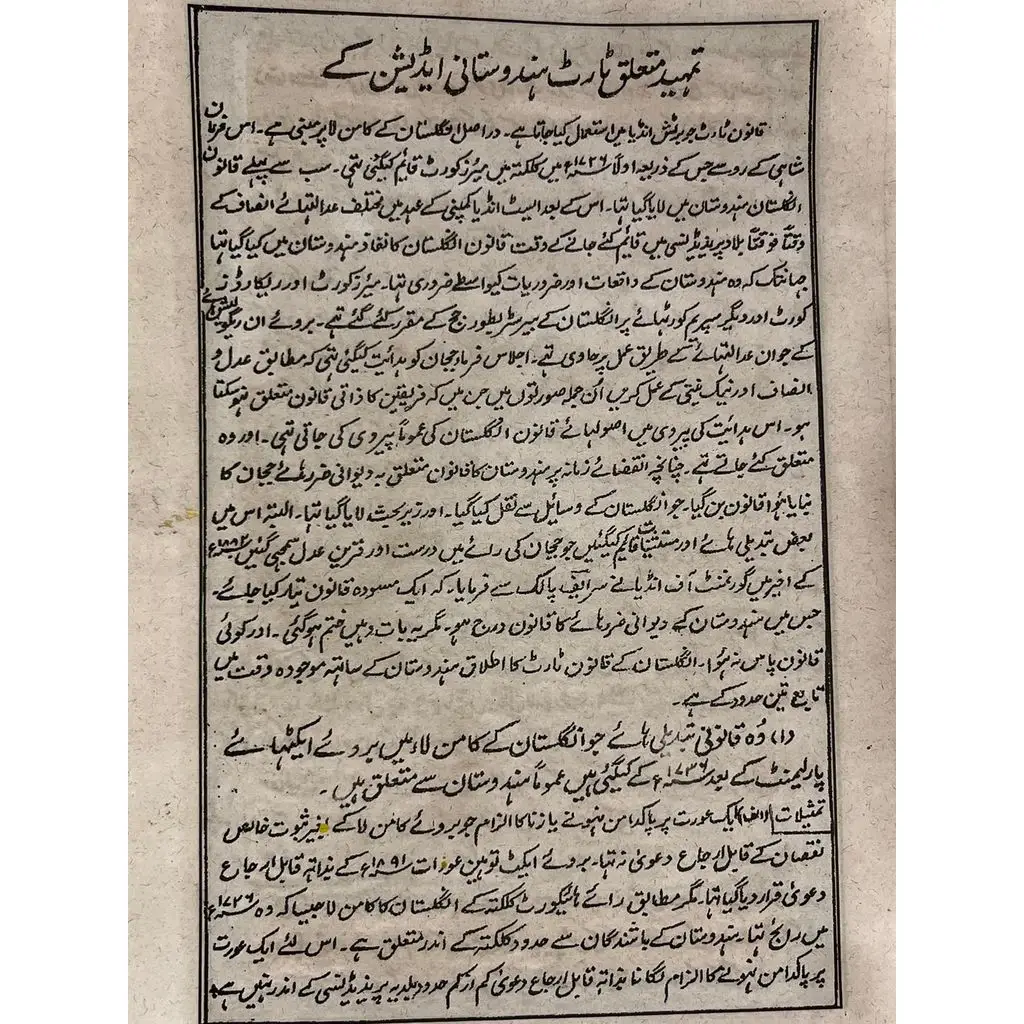 تمہید متعلق ٹارٹ ہندوستانی ایڈیشن کے
قانون ٹارٹ جو برٹش انڈیا میں استعمال کیا جاتا ہے۔ دراصل انگلستان کے کامن لا پر مبنی ہے۔ اس فرمان
شاہی کے رو سے جس کے ذریعہ اولاً ۱۷۲۶ء میں کلکتہ میں میئرز کورٹ قائم کیگئی تہی۔ سب سے پہلے قانون
انگلستان ہندوستان میں لایا گیا تہا۔ اس کے بعد ایسٹ انڈیا کمپنی کے عہد میں مختلف عدالتہائے انصاف کے
وقتاً فوقتاً بلاد پریذیڈنسی میں قائم کئے جانے کے وقت قانون انگلستان کا نفاذ ہندوستان میں کیا گیا تہا
جہانتک کہ وہ ہندوستان کے واقعات اور ضروریات کیواسطے ضروری تہا۔ میئرز کورٹ اور ریکارڈرز
کورٹ اور دیگر سپریم کورٹہائے پر انگلستان کے بیرسٹر بطور جج کے مقرر کئے گئے تہے۔ بروئے ان ریگولیشنہائے
کے جو ان عدالتہائے کے طریق عمل پر حاوی تہے۔ اجلاس فرما ججان کو ہدائیت کیگئی تہی کہ مطابق عدل و
انصاف اور نیک نیتی کے عمل کریں اُن جملہ صورتوں میں جن میں کہ فریقین کا ذاتی قانون متعلق نہو سکتا
ہو۔ اس ہدائیت کی پیروی میں اصولہائے قانون انگلستان کی عموماً پیروی کی جاتی تہی۔ اور وہ
متعلق کئے جاتے تہے۔ چنانچہ انقضائے زمانہ پر ہندوستان کا قانون متعلق بہ دیوانی ضررہائے ججان کا
بنایا ہوا قانون بن گیا۔ جو انگلستان کے وسائل سے نقل کیا گیا۔ اور زیر بحث لایا گیا تہا۔ البتہ اس میں
بعض تبدیلی ہائے اور مستثنیات قائم کیگئیں جو ججان کی رائے میں درست اور قرین عدل سمجہی گئیں ۱۸۸۲ء
کے اخیر میں گورنمنٹ آف انڈیا نے سر ایف پالک سے فرمایا۔ کہ ایک مسودہ قانون تیار کیا جائے۔
جس میں ہندوستان کے دیوانی ضررہائے کا قانون درج ہو۔ مگر یہ بات وہیں ختم ہوگئی۔ اور کوئی
قانون پاس نہ ہوا۔ انگلستان کے قانون ٹارٹ کا اطلاق ہندوستان کے ساتہہ موجودہ وقت میں
تابع تین حدود کے ہے۔
(۱) وُہ قانونی تبدیلی ہائے جو انگلستان کے کامن لاء میں بروئے ایکٹہائے
پارلیمنٹ کے بعد ۱۷۲۶ء کے کیگئی ہیں عموماً ہندوستان سے متعلق نہیں۔
تمثیلات (الف) ایک عورت پر پاکدامن نہونے یا زنا کا الزام جو بروئے کامن لا کے بغیر ثبوت خالص
نقصان کے قابل ارجاع دعویٰ نہ تہا۔ بروئے ایکٹ توہین عورات ۱۸۹۱ء کے بذاتہ قابل ارجاع
دعویٰ قرار دیا گیا تہا۔ مگر مطابق رائے ہائیکورٹ کلکتہ کے انگلستان کا کامن لا جیسا کہ وہ ۱۷۲۶ء
میں رائج تہا۔ ہندوستان کے باشندگان سے حدود کلکتہ کے اندر متعلق ہے۔ اس لئے ایک عورت
پر پاکدامن نہونے کا الزام لگانا بذاتہ قابل ارجاع دعویٰ کم از کم حدود بلدیہ پریذیڈنسی کے اندر نہیں ہے